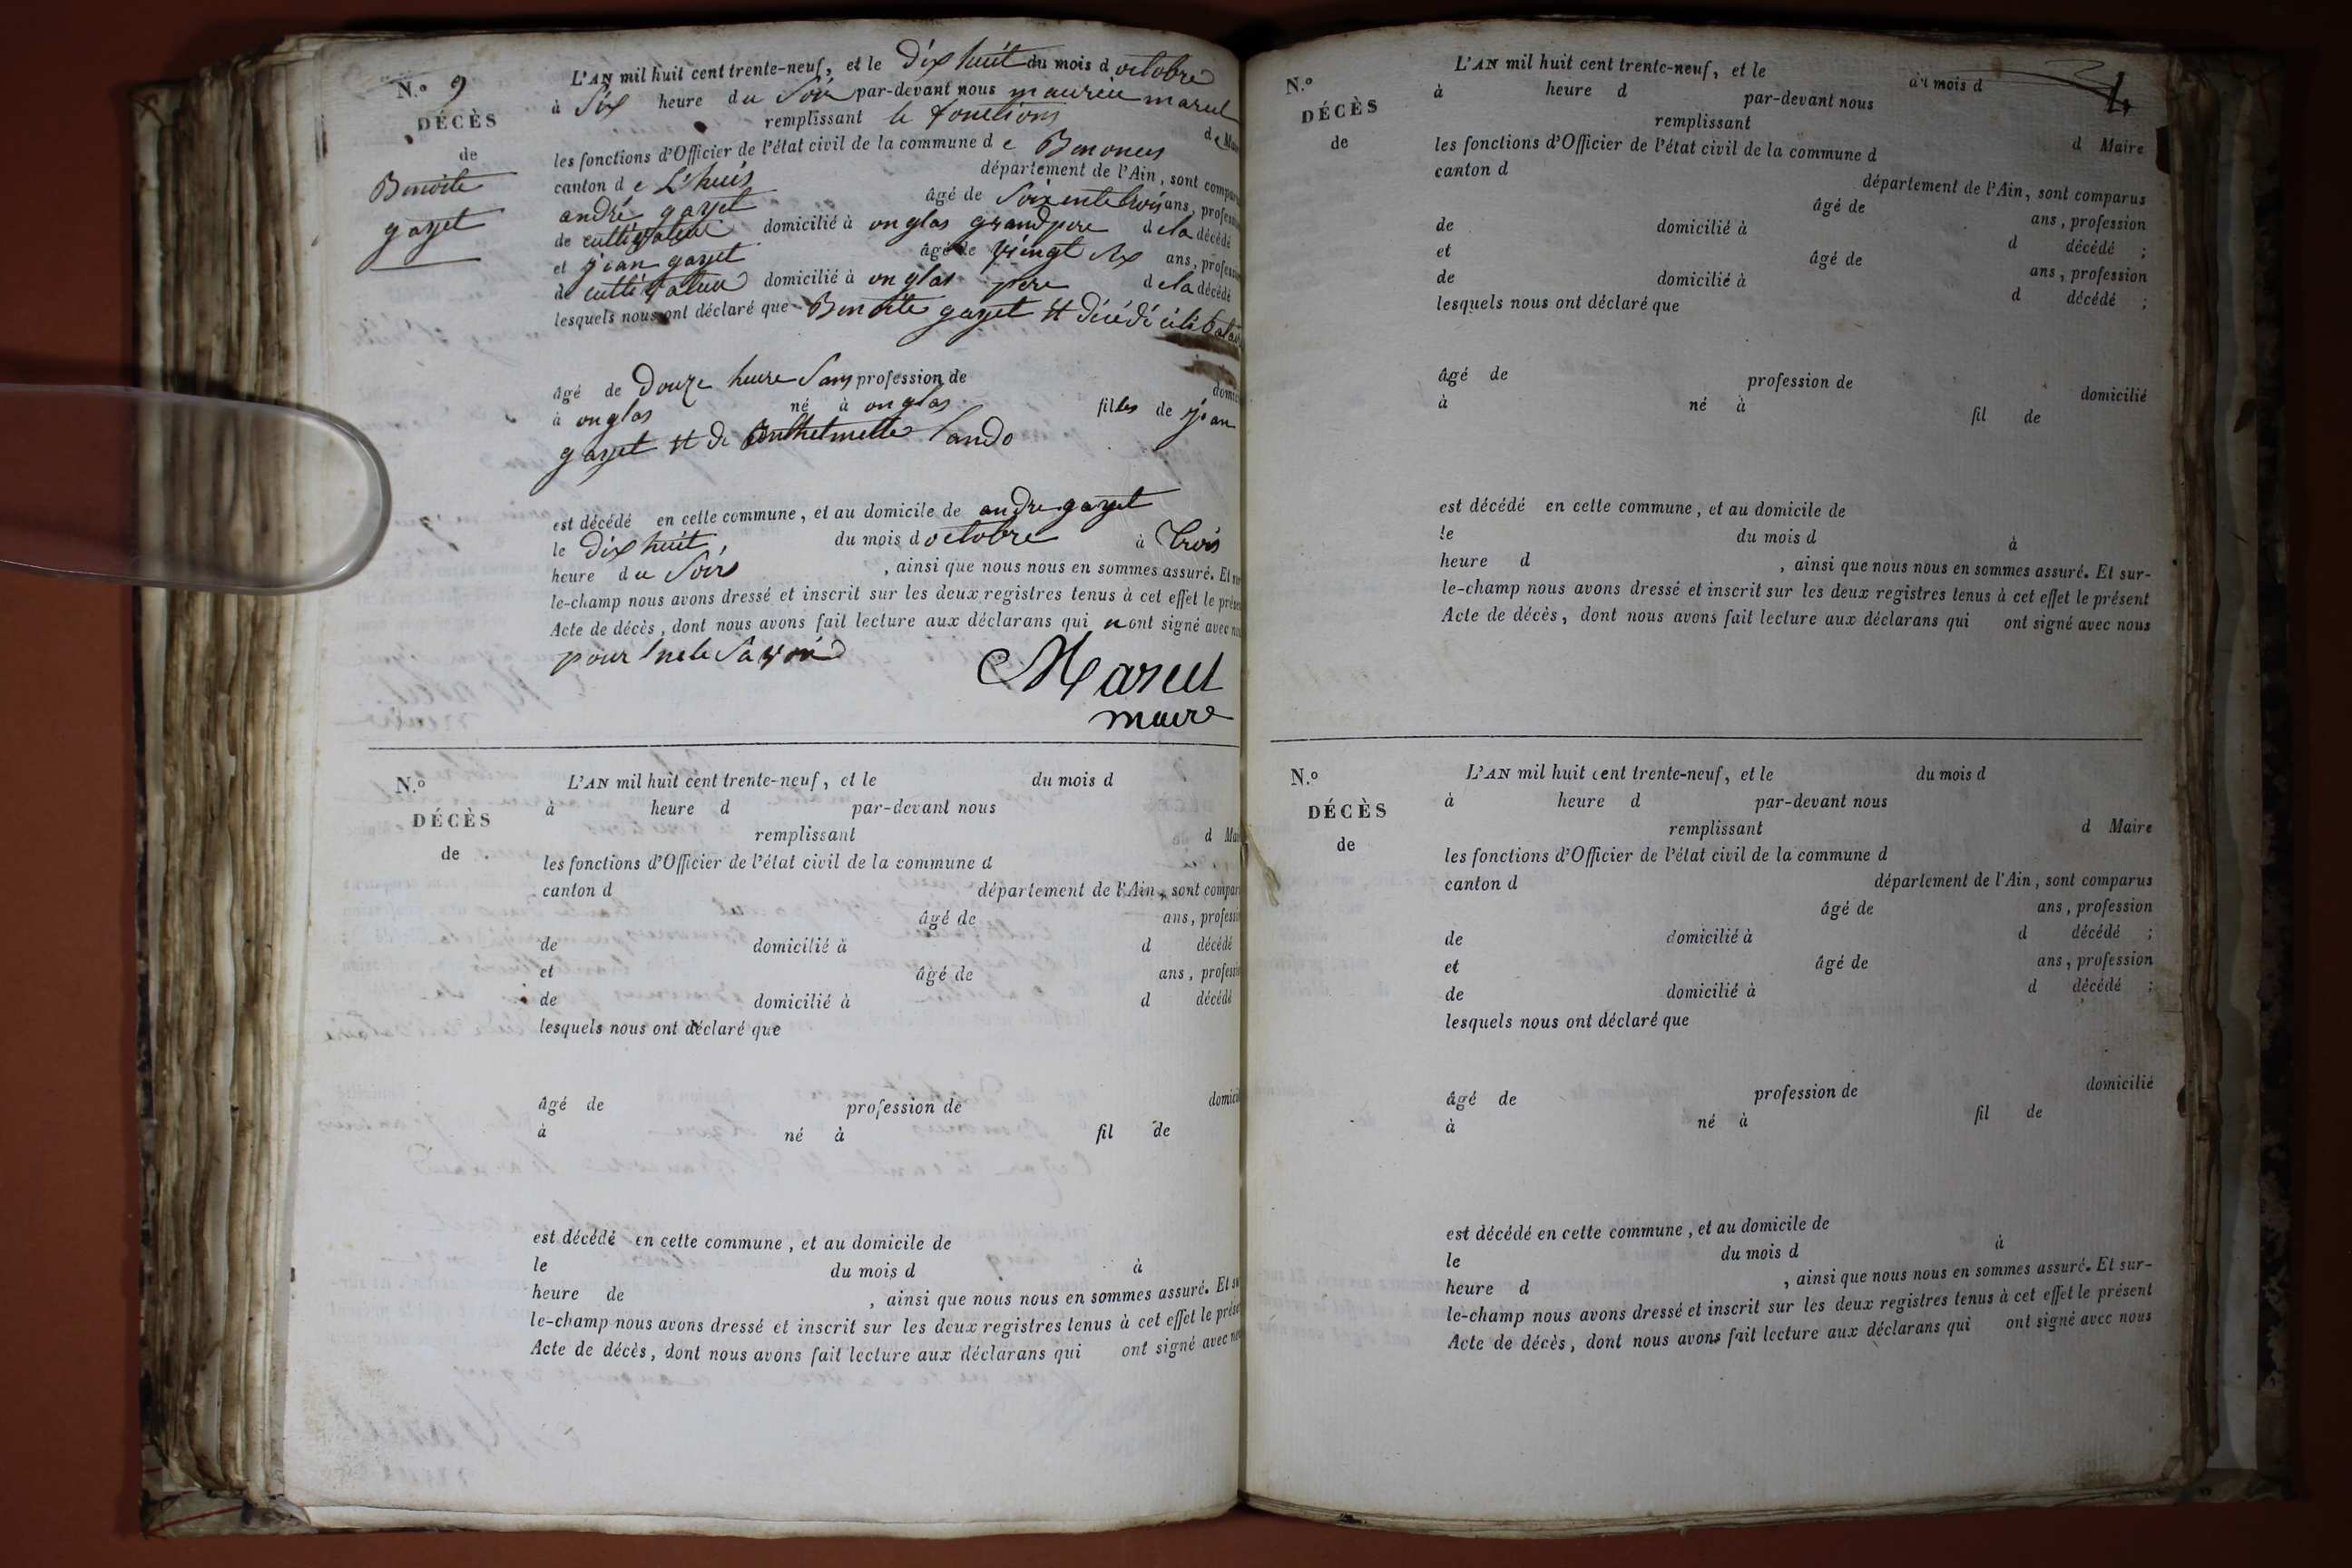 N.º 9
DÉCÈS
de
Benoite
gayet
L'AN mil huit cent trente-neuf, et le dix huit du mois d octobre
à Six heure du Soir par-devant nous maurice marel
remplissant le fonctions de Ma
les fonctions d'Officier de l'état civil de la commune de Benonces
canton de L'huis département de l'Ain, sont compa
andré gayet âgé de Soixente trois ans, profess
de cultivateur domicilié à onglas grandpere de la décédé
et jean gayet âgé de vingt six ans, profess
de cultivateur domicilié à onglas pere de la décédé
lesquels nous ont déclaré que Benoite gayet et décédé célibataire
âgé de Douze heure Sans profession de domic
à onglas né à onglas filles de jean
gayet et de Anthelmette lando
est décédé en cette commune, et au domicile de andre gayet
le dix huit du mois d octobre à trois
heure du Soir , ainsi que nous nous en sommes assuré. Et sur
le-champ nous avons dressé et inscrit sur les deux registres tenus à cet effet le prése
Acte de décès, dont nous avons fait lecture aux déclarans qui nont signé avec no
pour ne le Savoir
Marel
maire
N.º
DÉCÈS
de
L'AN mil huit cent trente-neuf, et le du mois d
à heure d par-devant nous
remplissant d Mai
les fonctions d'Officier de l'état civil de la commune d
canton d département de l'Ain, sont compar
âgé de ans, professi
de domicilié à d décédé
et âgé de ans, professi
de domicilié à d décédé
lesquels nous ont déclaré que
âgé de profession de domici
à né à fil de
est décédé en cette commune, et au domicile de
le du mois d à
heure de , ainsi que nous nous en sommes assuré. Et su
le-champ nous avons dressé et inscrit sur les deux registres tenus à cet effet le prése
Acte de décès, dont nous avons fait lecture aux déclarans qui ont signé avec no
4
N.º
DÉCÈS
de
L'AN mil huit cent trente-neuf, et le du mois d
à heure d par-devant nous
remplissant d Maire
les fonctions d'Officier de l'état civil de la commune d
canton d département de l'Ain, sont comparus
âgé de ans, profession
de domicilié à d décédé ;
et âgé de ans, profession
de domicilié à d décédé ;
lesquels nous ont déclaré que
âgé de profession de domicilié
à né à fil de
est décédé en cette commune, et au domicile de
le du mois d à
heure d , ainsi que nous nous en sommes assuré. Et sur-
le-champ nous avons dressé et inscrit sur les deux registres tenus à cet effet le présent
Acte de décès, dont nous avons fait lecture aux déclarans qui ont signé avec nous
N.º
DÉCÈS
de
L'AN mil huit cent trente-neuf, et le du mois d
à heure d par-devant nous
remplissant d Maire
les fonctions d'Officier de l'état civil de la commune d
canton d département de l'Ain, sont comparus
âgé de ans, profession
de domicilié à d décédé ;
et âgé de ans, profession
de domicilié à d décédé ;
lesquels nous ont déclaré que
âgé de profession de domicilié
à né à fil de
est décédé en cette commune, et au domicile de
le du mois d à
heure d , ainsi que nous nous en sommes assuré. Et sur-
le-champ nous avons dressé et inscrit sur les deux registres tenus à cet effet le présent
Acte de décès, dont nous avons fait lecture aux déclarans qui ont signé avec nous